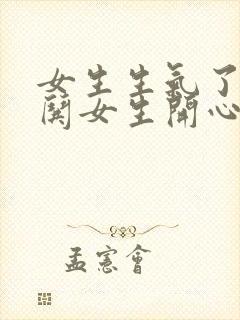 女生生氣了
鬨女生開心
孟憲會